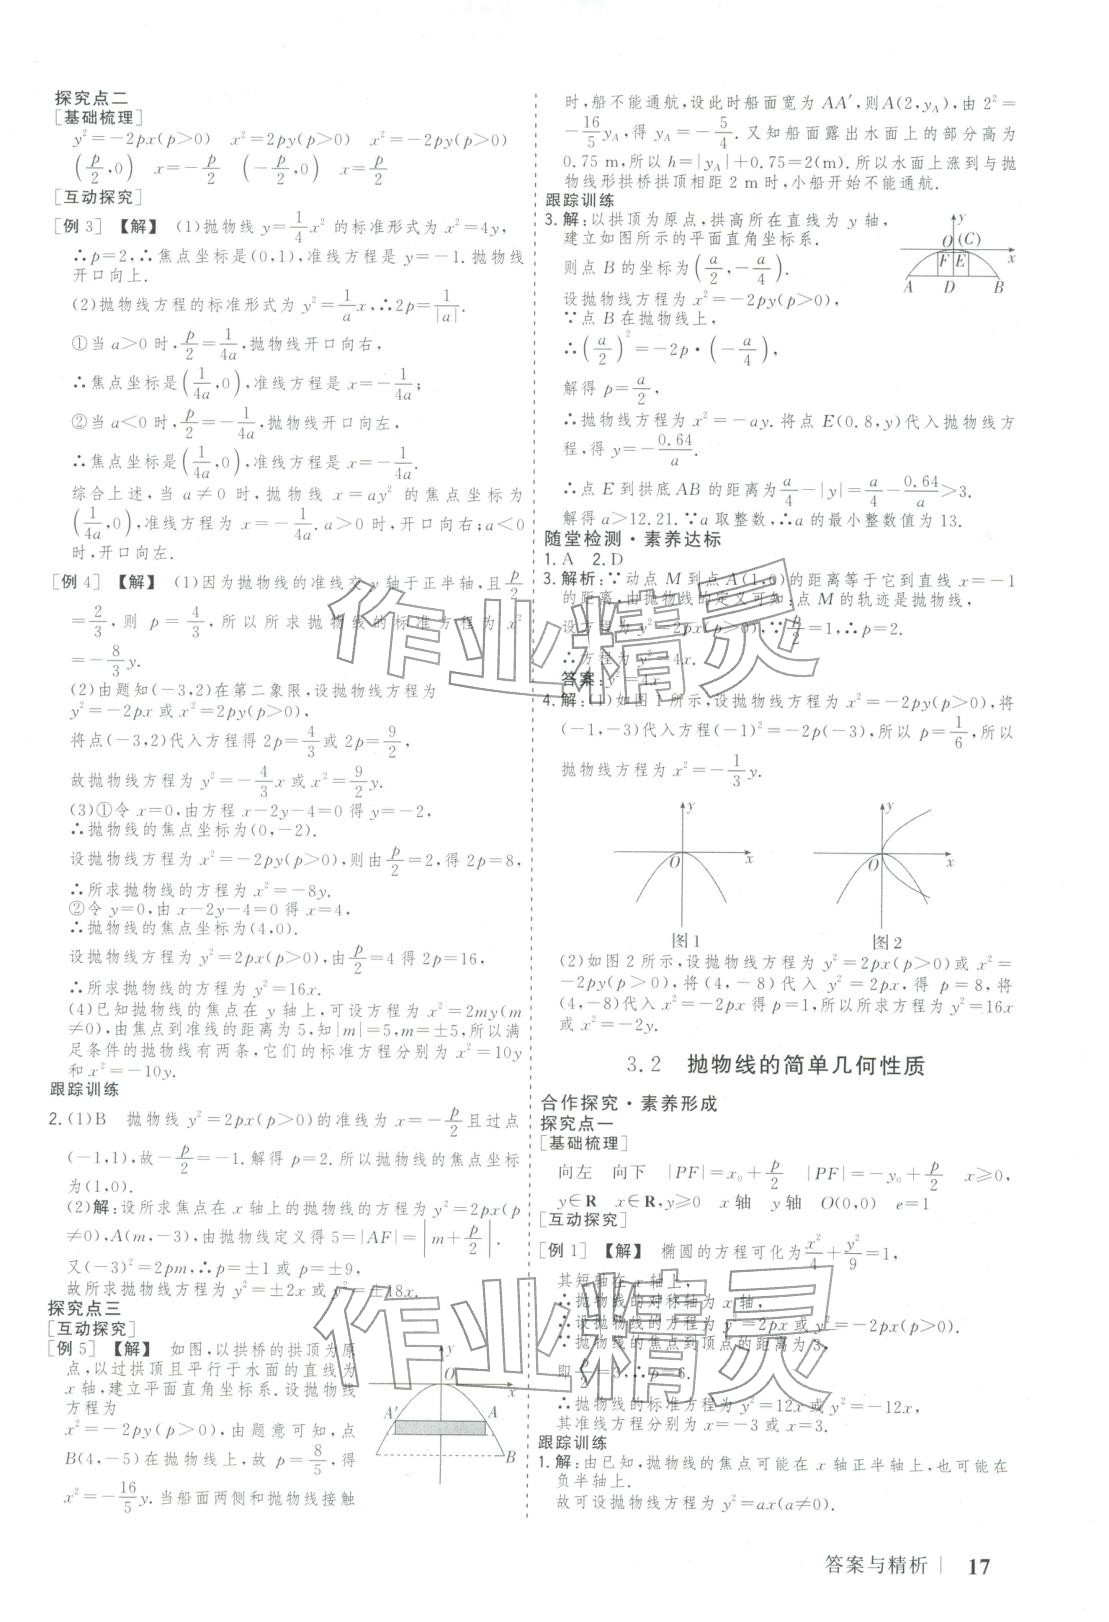 探究点二
[基础梳理]
y²=-2px(p>0) x²=2py(p>0) x²=-2py(p>0)
(p/2,0) x=-p/2 (-p/2,0) x=p/2
[互动探究]
[例 3] 【解】 (1)抛物线 y=1/4x² 的标准形式为 x²=4y,
∴p=2,∴焦点坐标是(0,1),准线方程是 y=-1. 抛物线
开口向上.
(2)抛物线方程的标准形式为 y²=1/a x,∴2p=1/|a|.
①当 a>0 时,p/2=1/4a,抛物线开口向右,
∴焦点坐标是(1/4a,0),准线方程是 x=-1/4a;
②当 a<0 时,p/2=-1/4a,抛物线开口向左,
∴焦点坐标是(1/4a,0),准线方程是 x=-1/4a.
综合上述,当 a≠0 时,抛物线 x=ay² 的焦点坐标为
(1/4a,0),准线方程为 x=-1/4a. a>0 时,开口向右;a<0
时,开口向左.
[例 4] 【解】 (1)因为抛物线的准线交 y 轴于正半轴,且p/2
=2/3,则 p=4/3,所以所求抛物线的标准方程为 x²
=-8/3y.
(2)由题知(-3,2)在第二象限,设抛物线方程为
y²=-2px 或 x²=2py(p>0),
将点(-3,2)代入方程得 2p=4/3或 2p=9/2,
故抛物线方程为 y²=-4/3x 或 x²=9/2y.
(3)①令 x=0,由方程 x-2y-4=0 得 y=-2,
∴抛物线的焦点坐标为(0,-2).
设抛物线方程为 x²=-2py(p>0),则由p/2=2,得 2p=8,
∴所求抛物线的方程为 x²=-8y.
②令 y=0,由 x-2y-4=0 得 x=4,
∴抛物线的焦点坐标为(4,0).
设抛物线方程为 y²=2px(p>0),由p/2=4 得 2p=16,
∴所求抛物线的方程为 y²=16x.
(4)已知抛物线的焦点在 y 轴上,可设方程为 x²=2my(m
≠0),由焦点到准线的距离为 5,知|m|=5,m=±5,所以满
足条件的抛物线有两条,它们的标准方程分别为 x²=10y
和 x²=-10y.
跟踪训练
2. (1)B 抛物线 y²=2px(p>0)的准线为 x=-p/2且过点
(-1,1),故-p/2=-1. 解得 p=2. 所以抛物线的焦点坐标
为(1,0).
(2)解:设所求焦点在 x 轴上的抛物线的方程为 y²=2px(p
≠0),A(m,-3),由抛物线定义得 5=|AF|=|m+p/2|.
又(-3)²=2pm,∴p=±1 或 p=±9,
故所求抛物线方程为 y²=±2x 或 y²=±18x.
探究点三
[互动探究]
[例 5] 【解】 如图,以拱桥的拱顶为原
点,以过拱顶且平行于水面的直线为
x 轴,建立平面直角坐标系. 设抛物线
方程为
x²=-2py(p>0),由题意可知,点
B(4,-5)在抛物线上,故 p=8/5,得
x²=-16/5y. 当船面两侧和抛物线接触
y
O
x
A′
A
B
时,船不能通航,设此时船面宽为 AA′,则 A(2,y_A),由 2²=
-16/5y_A,得 y_A=-5/4. 又知船面露出水面上的部分高为
0.75 m,所以 h=|y_A|+0.75=2(m). 所以水面上涨到与抛
物线形拱桥拱顶相距 2 m 时,小船开始不能通航.
跟踪训练
3. 解:以拱顶为原点,拱高所在直线为 y 轴,
建立如图所示的平面直角坐标系.
则点 B 的坐标为(a/2,-a/4).
设抛物线方程为 x²=-2py(p>0),
∵点 B 在抛物线上,
∴(a/2)²=-2p·(-a/4),
解得 p=a/2,
∴抛物线方程为 x²=-ay. 将点 E(0.8,y)代入抛物线方
程,得 y=-0.64/a.
∴点 E 到拱底 AB 的距离为a/4-|y|=a/4-0.64/a>3.
解得 a>12.21. ∵a 取整数,∴a 的最小整数值为 13.
y
O (C)
x
F E
A D B
随堂检测·素养达标
1. A 2. D
3. 解析:∵动点 M 到点 A(1,0)的距离等于它到直线 x=-1
的距离,由抛物线的定义可知:点 M 的轨迹是抛物线,
设方程为 y²=2px(p>0),∵p/2=1,∴p=2.
∴方程为 y²=4x.
答案:y²=4x
4. 解:(1)如图 1 所示,设抛物线方程为 x²=-2py(p>0),将
(-1,-3)代入方程(-1)²=-2p(-3),所以 p=1/6,所以
抛物线方程为 x²=-1/3y.
y
O
x
图 1
y
O
x
图 2
(2)如图 2 所示,设抛物线方程为 y²=2px(p>0)或 x²=
-2py(p>0),将(4,-8)代入 y²=2px,得 p=8,将
(4,-8)代入 x²=-2px 得 p=1,所以所求方程为 y²=16x
或 x²=-2y.
3.2 抛物线的简单几何性质
合作探究·素养形成
探究点一
[基础梳理]
向左 向下 |PF|=x₀+p/2 |PF|=-y₀+p/2 x≥0,
y∈R x∈R,y≥0 x 轴 y 轴 O(0,0) e=1
[互动探究]
[例 1] 【解】 椭圆的方程可化为x²/4+y²/9=1,
其短轴在 x 轴上,
∴抛物线的对称轴为 x 轴,
∴设抛物线的方程为 y²=2px 或 y²=-2px(p>0).
∵抛物线的焦点到顶点的距离为 3,
即p/2=3,∴p=6.
∴抛物线的标准方程为 y²=12x 或 y²=-12x,
其准线方程分别为 x=-3 或 x=3.
跟踪训练
1. 解:由已知,抛物线的焦点可能在 x 轴正半轴上,也可能在
负半轴上.
故可设抛物线方程为 y²=ax(a≠0).
作业精灵
作业精灵
答案与精析 | 17